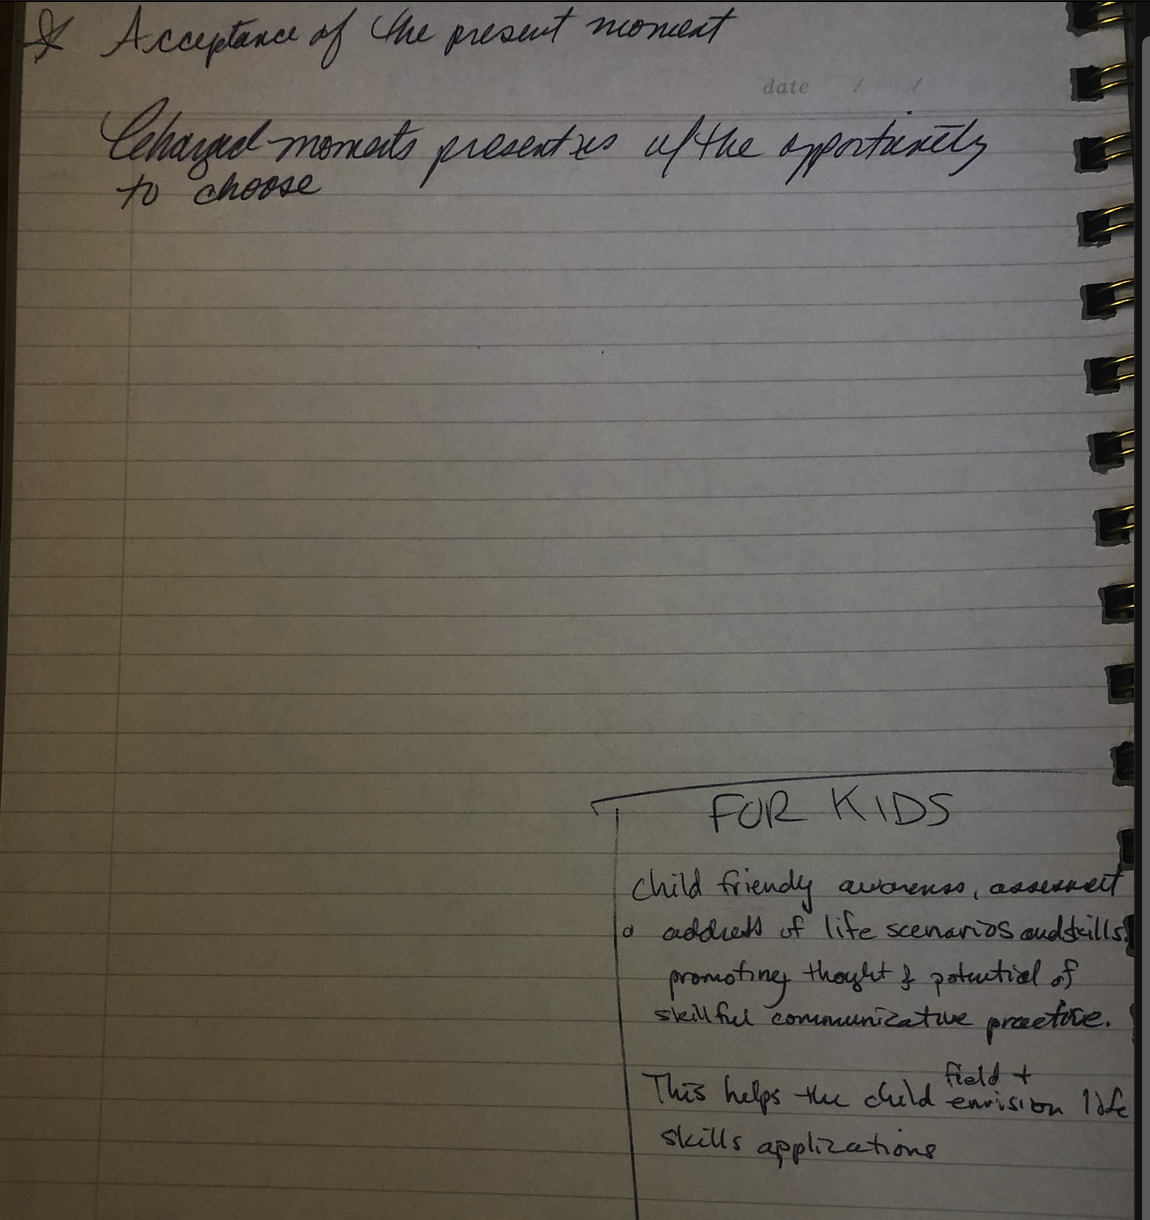 Acceptance of the present moment
date / /
Charged moments present us w/ the opportunity
to choose
FOR KIDS
Child friendly awareness, assessment
address of life scenarios and skills
promoting thoght & potential of
skillful communicative practice.
field +
This helps the child envision life
skills applications